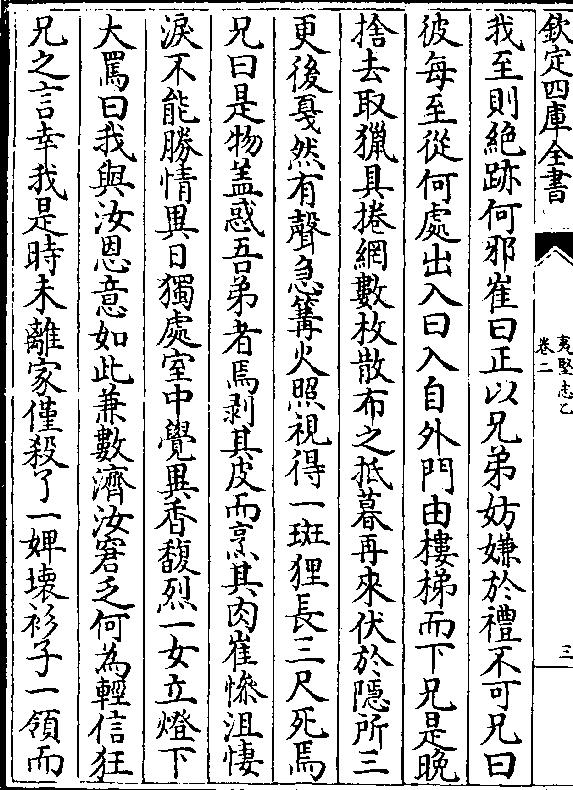 欽定四庫全書
夷堅志乙
卷二
三
我至則絶跡何邪崔曰正以兄弟妨嫌於禮不可兄曰
彼每至從何處出入曰入自外門由樓梯而下兄是晚
捨去取獵具捲網數枚散布之抵暮再來伏於隱所三
更後戛然有聲急篝火照視得一斑狸長三尺死焉
兄曰是物蓋惑吾弟者焉剥其皮而烹其肉崔慘沮悽
淚不能勝情異日獨處室中覺異香馥烈一女立燈下
大罵曰我與汝恩意如此兼數濟汝窘乏何為輕信狂
兄之言幸我是時未離家僅殺了一婢壊衫子一領而